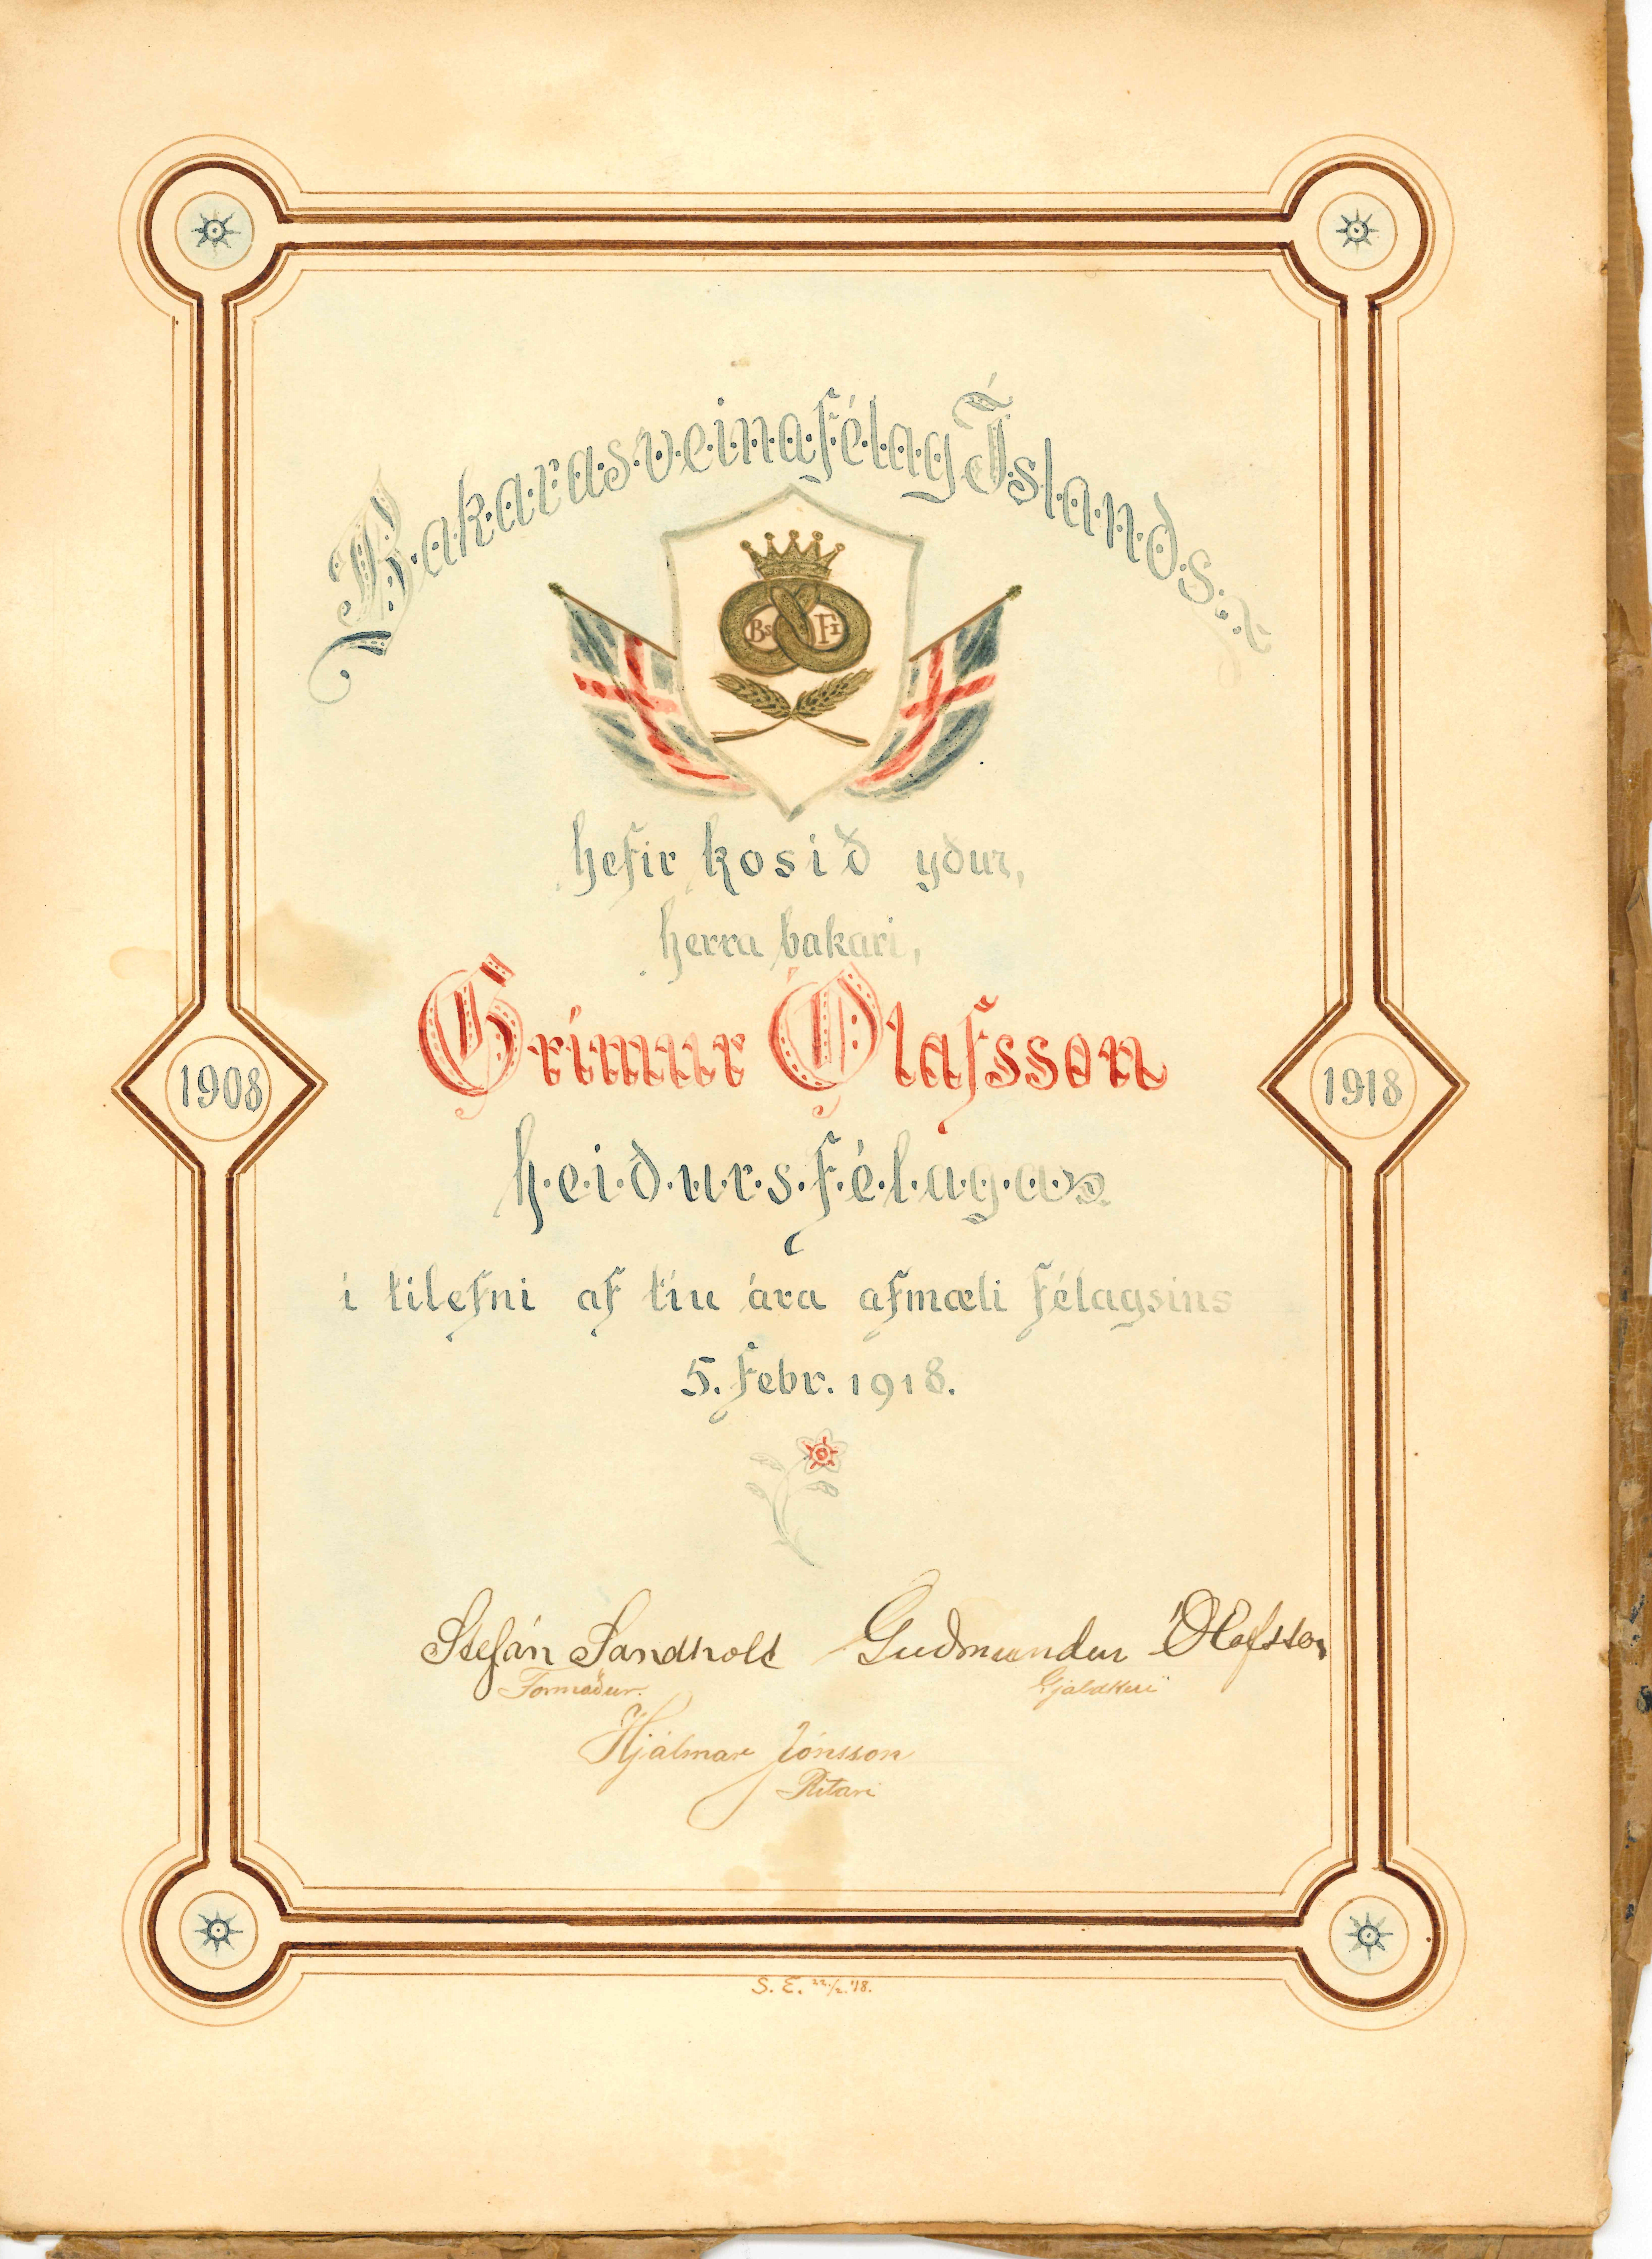 Bakarasveinafélag Íslands
Bs Fi
hefir kosið yður,
herra bakari,
Grímur Ólafsson
1908
1918
heiðursfélaga
í tilefni af tíu ára afmæli félagsins
5. febr. 1918.
Stefán Sandholt Guðmundur Ólafsson
Formaður. Gjaldkeri
Hjálmar Jónsson
Ritari
S. E. 22/2.'18.